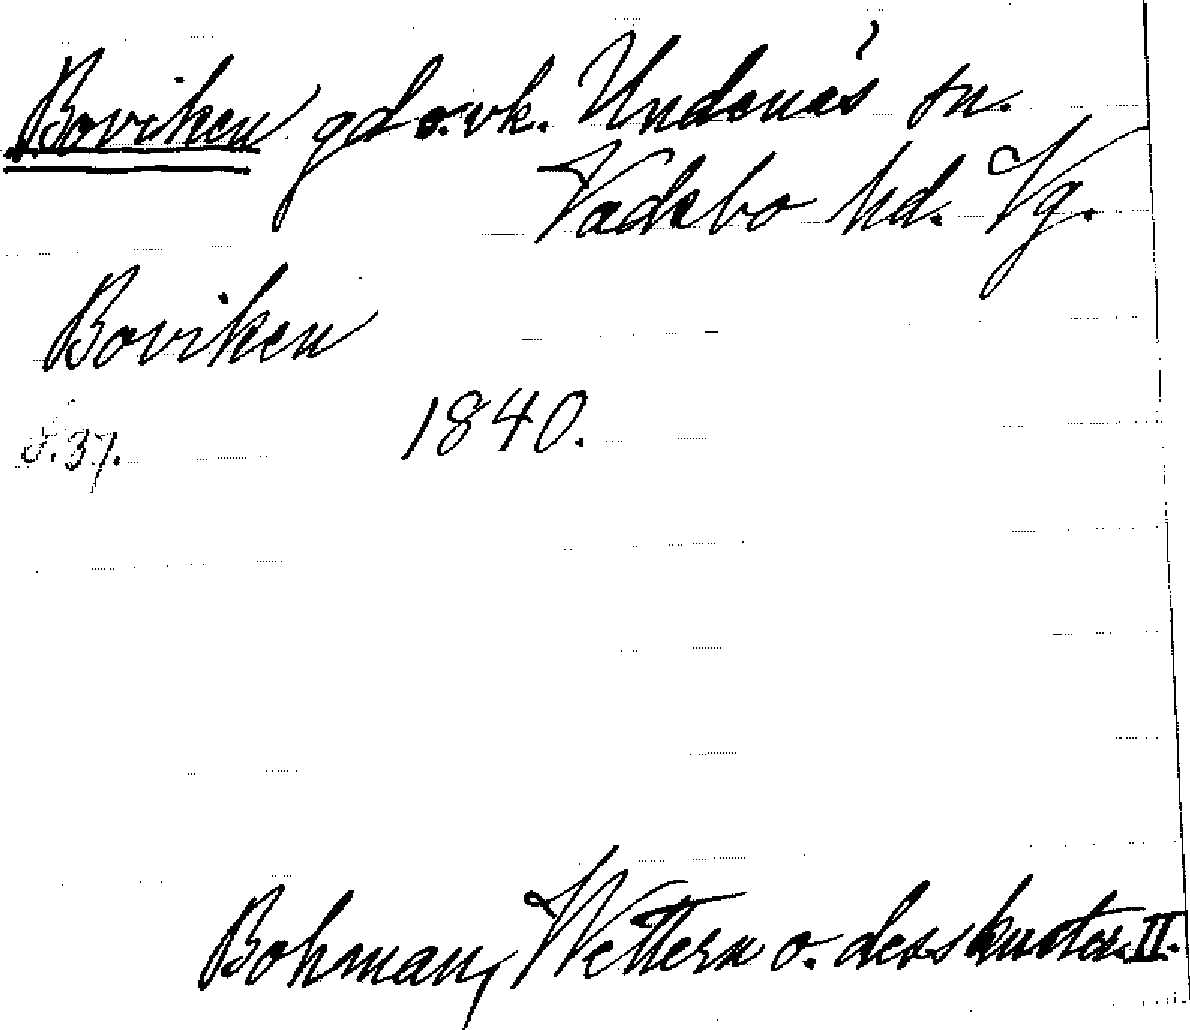 Boviken gd o. vk. Undenäs sn.
Vadsbo hd. Vg.
Boviken
S. 37. 1840.
Bohman, Wettern o. dess kuster. II.